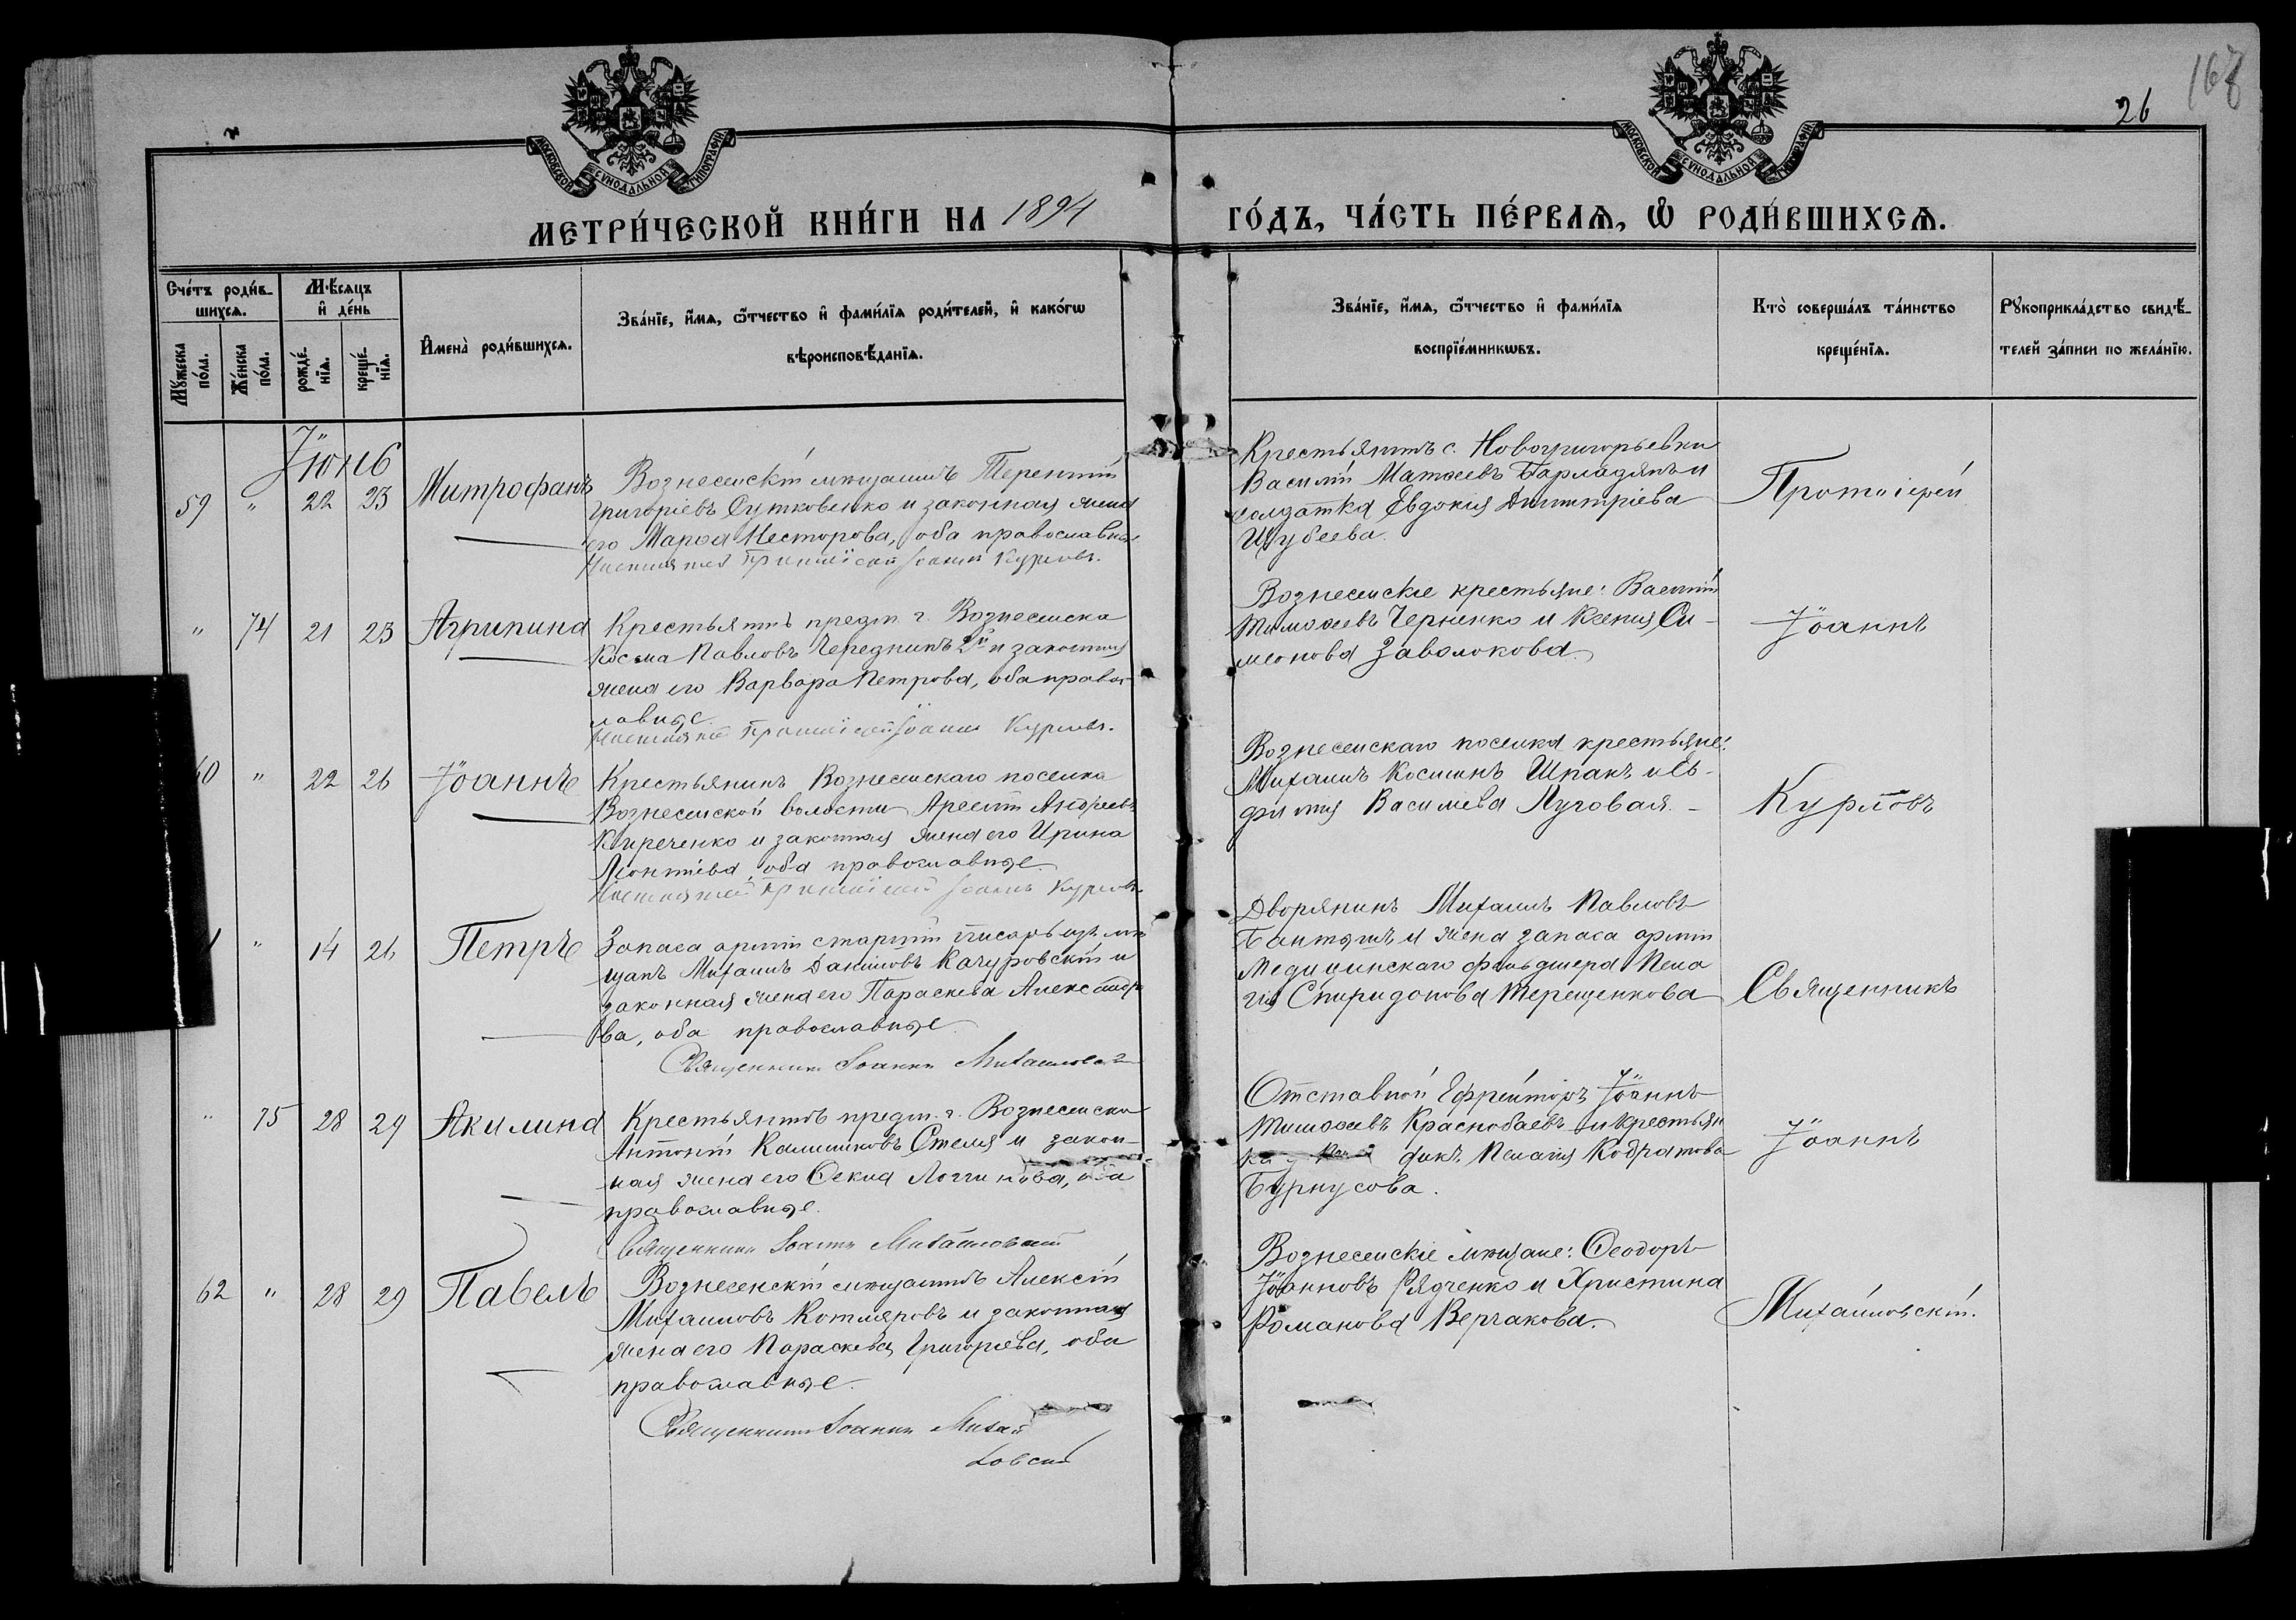 168
26
МОСКОВСКОЙ СѴНОДАЛЬНОЙ ТИПОГРАФІИ
МОСКОВСКОЙ СѴНОДАЛЬНОЙ ТИПОГРАФІИ
МЕТРИ́ЧЕСКОЙ КНИ́ГИ НА 1894 ГО́ДЪ, ЧА́СТЬ ПЕ́РВАѦ, Ѡ҆ РОДИ́ВШИХСѦ.
Сче́тъ роди́в-
шихсѧ.
Мꙋ́жеска по́ла.
Же́нска по́ла.
Мѣ́сѧцъ
и҆ де́нь
рожде́-
нїѧ.
креще́-
нїѧ.
И҆мена̀ роди́вшихсѧ.
Зва́нїе, и҆́мѧ, ѻ҆́тчество и҆ фами́лїѧ роди́телей, и҆ како́гѡ
вѣроисповѣ́данїѧ.
Зва́нїе, и҆́мѧ, ѻ҆́тчество и҆ фами́лїѧ
воспрїе́мникѡвъ.
Кто̀ соверша́лъ та́инство
креще́нїѧ.
Рꙋкоприкла́дство свидѣ́-
телей за́писи по жела́нїю.
Іюнь
59 " 22 23 Митрофанъ
Вознесенскій мѣщанинъ Терентій
Григоріевъ Сутковенко и законная жена
его Марѳа Несторова, оба православные
Протоіерей Іоаннъ Курловъ.
Крестьянинъ с. Новогригорьевки
Василій Матѳеевъ Барладянъ и
солдатка Евдокія Димитріева
Шубеева.
Протоіерей
" 74 21 23 Агрипина
Крестьянинъ предм. г. Вознесенска
Косма Павловъ Чередникъ 2й и законная
жена его Варвара Петрова, оба право-
славные.
Протоіерей Іоаннъ Курловъ.
Вознесенскіе крестьяне: Василій
Тимоѳеевъ Черненко и Ксенія Си-
меонова Заволокова.
Іоаннъ
60 " 22 26 Іоаннъ
Крестьянинъ Вознесенскаго поселка
Вознесенской волости Арсеній Андреевъ
Киреченко и законная жена его Ирина
Леонтіева, оба православные.
Протоіерей Іоаннъ Курловъ.
Вознесенскаго поселка крестьяне:
Михаилъ Косминъ Шпакъ и Ев-
фимія Василіева Луговая.
Курловъ
" 14 26 Петръ
Запаса арміи старшій писарь изъ мѣ
щанъ Михаилъ Даниловъ Качуровскій и
законная жена его Параскева Александро
ва, оба православные.
Священникъ Іоаннъ Михайловскій
Дворянинъ Михаилъ Павловъ
Бантышъ и жена запаса арміи
медицинскаго фельдшера Пела
гія Спиридонова Терещенкова
Священникъ
" 75 28 29 Акилина
Крестьянинъ предм. г. Вознесенска
Антоній Калинниковъ Стеля и закон-
ная жена его Ѳекла Логгинова, оба
православные.
Священникъ Іоаннъ Михайловскій
Отставной Ефрейторъ Іоаннъ
Тимоѳеевъ Краснобаевъ и крестьян
ка Пелагія Кодратова
Бурнусова.
Іоаннъ
62 " 28 29 Павелъ
Вознесенскій мѣщанинъ Алексій
Михаиловъ Котляровъ и законная
жена его Параскева Григоріева, оба
православные.
Священникъ Іоаннъ Михай
ловскій
Вознесенскіе мѣщане: Ѳеодоръ
Іоанновъ Рядченко и Христина
Романова Верчакова.
Михайловскій.